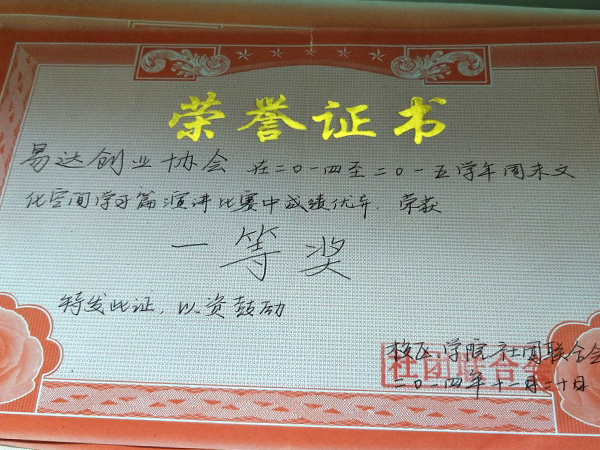 荣誉证书
易达创业协会 在二〇一四至二〇一五学年周末文
化空间学习篇演讲比赛中成绩优异,荣获
一等奖
特发此证,以资鼓励
校区学院社团联合会
社团联合会
二〇一四年十二月二十日